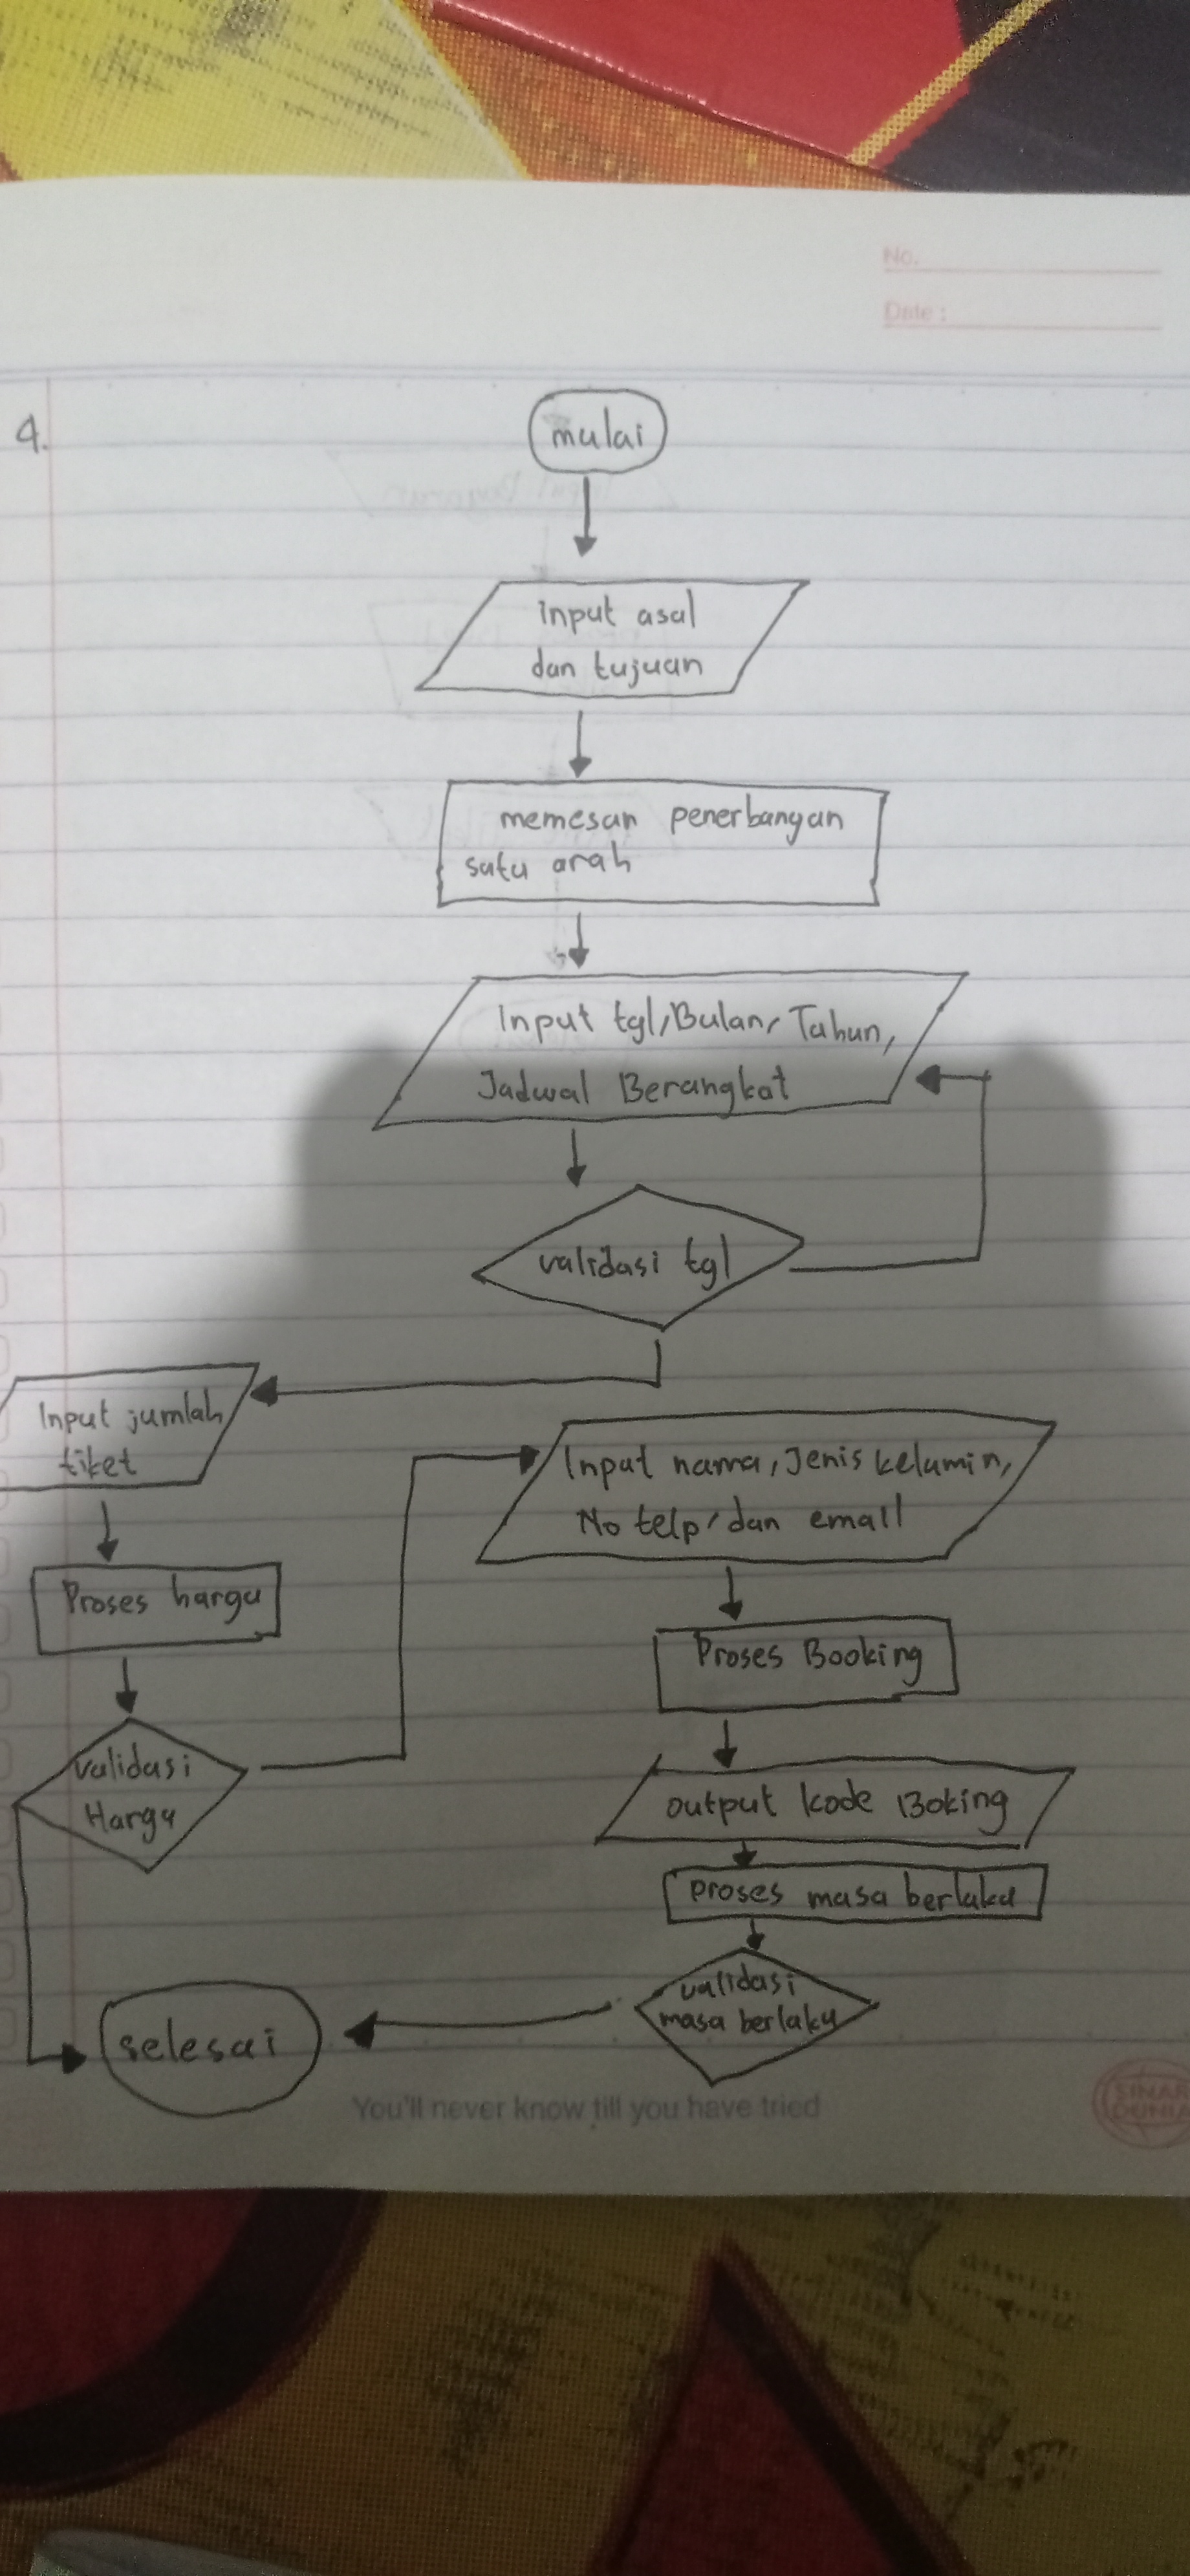 No.
Date :
4.
mulai
Input asal
dan tujuan
memesan penerbangan
satu arah
Input tgl, Bulan, Tahun,
Jadwal Berangkat
validasi tgl
Input jumlah
tiket
Proses harga
validasi
Harga
Input nama, Jenis kelamin,
No telp, dan email
Proses Booking
output kode Boking
proses masa berlaku
validasi
masa berlaku
selesai
You'll never know till you have tried
SINAR
DUNIA